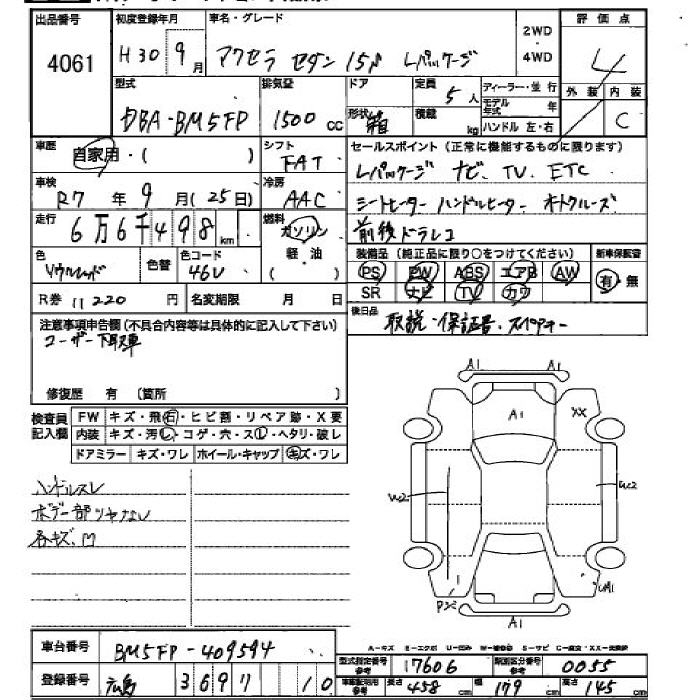 出品番号 4061
初度登録年月 H30 9月
車名・グレード アクセラ セダン 15S Lパッケージ
2WD・4WD
評価点 4
外装 内装 C
型式 DBA-BM5FP
排気量 1500cc
ドア 形状 箱
定員 5人
積載 kg
ディーラー・並行
モデル年式 年
ハンドル 左・右
車歴 自家用・( )
シフト FAT
セールスポイント(正常に機能するものに限ります)
Lパッケージ ナビ、TV、ETC
シートヒーター ハンドルヒーター オートクルーズ
前後ドラレコ
車検 R7年9月(25日)
冷房 AAC
走行 6万6千498km
燃料 ガソリン 軽・油 ( )
色 ソウルレッド
色替
色コード 46V
装備品(純正品に限り○をつけてください)
PS PW ABS エアB AW
SR ナビ TV カワ
新車保証書 有・無
R券 11220円
名変期限 月 日
後日品 取説・保証書・スペアキー
注意事項申告欄(不具合内容等は具体的に記入して下さい)
ユーザー下取車
修復歴 有 〔箇所 〕
検査員記入欄
FW キズ・飛石・ヒビ割・リペア跡・X要
内装 キズ・汚レ・コゲ・穴・スレ・ヘタリ・破レ
ドアミラー キズ・ワレ ホイール・キャップ キズ・ワレ
ハンドルスレ
ボデー部ツヤなし
各キズ、M
A1 A1
A1
XX
W2 W2
P2
A1
A-キズ E-エクボ U-凹み W-補修跡 S-サビ C-腐食・XX-交換済
車台番号 BM5FP-409594
登録番号 広島 3697 10
型式指定番号 参考 17606
類別区分番号 参考 0055
車庫証明用参考 長さ 458cm 幅 179cm 高さ 145cm